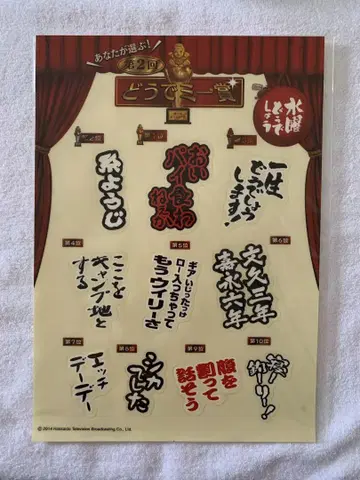 あなたが選ぶ！
第2回
どうでミー賞
水曜
どうでしょう
第2位
第1位
第3位
糸ようじ
おい
パイ食わ
ねぇか
一生
どうでしょう
します！
第4位
第5位
第6位
ここを
キャンプ地と
する
ギアいじったっけ
ロー入っちゃって
もうウイリーさ
文久三年
嘉永六年
第7位
第8位
第9位
第10位
エッチ
デーデー
シカ
でした
腹を
割って
話そう
釣〜り〜！
©2014 Hokkaido Television Broadcasting Co., Ltd.